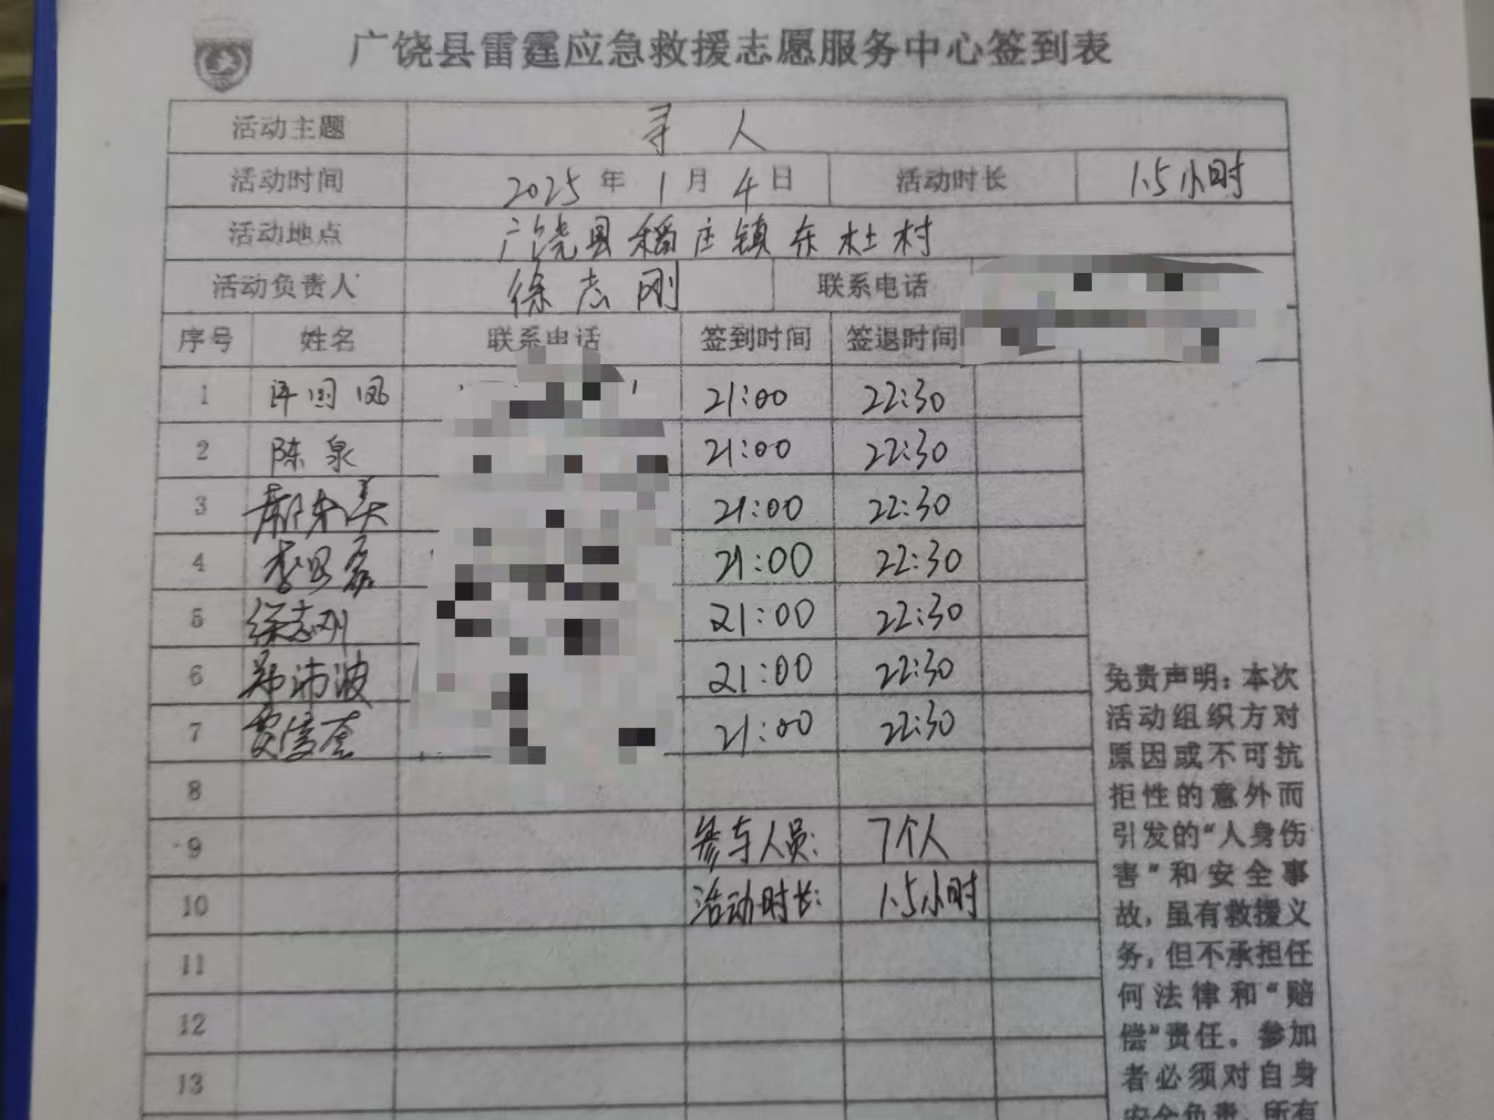 广饶县雷霆应急救援志愿服务中心签到表
活动主题 寻人
活动时间 2025年1月4日 活动时长 1.5小时
活动地点 广饶县稻庄镇东杜村
活动负责人 徐志刚 联系电话
序号 姓名 联系电话 签到时间 签退时间
1 21:00 22:30
2 陈泉 21:00 22:30
3 21:00 22:30
4 21:00 22:30
5 徐志刚 21:00 22:30
6 郑沛波 21:00 22:30
7 21:00 22:30
8
9 参与人员: 7个人
10 活动时长: 1.5小时
11
12
13
免责声明:本次
活动组织方对
原因或不可抗
拒性的意外而
引发的“人身伤
害”和安全事
故,虽有救援义
务,但不承担任
何法律和“赔
偿”责任。参加
者必须对自身
安全负责,所有